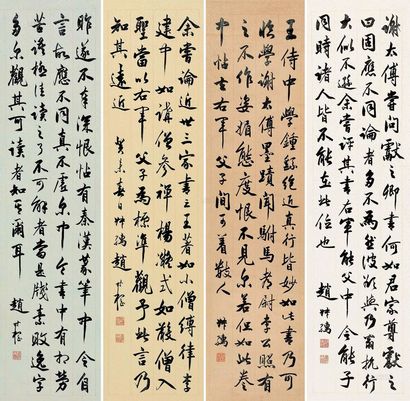 謝太傅嘗問獻之卿書何如君家尊獻之
曰固應不同論者多不為然彼欲與乃翁抗行
大似不遜余嘗評其書右軍能父中令能子
同時諸人皆不能在此位也 趙叔孺
王侍中學鍾繇絕近真行皆妙如此書乃可
臨學謝太傅墨蹟聞駙馬都尉李公照有
之不作姿媚態度恨不見尔若但如此卷
中帖去右軍父子間可著數人 叔孺
余嘗論近世三家書云王著如小僧縛律李
建中如講僧參禪楊凝式如散僧入
聖當以右軍父子為標準觀予此言乃
知其遠近 癸未春日叔孺趙時棡
昨遂不奉深恨帖有秦漢篆筆中令自
言故應不同真不虛尔中令書中有相勞
苦語極佳讀之了不可解者當是牋素敗逸字
多尔觀其可讀者知其爾耳 趙時棡